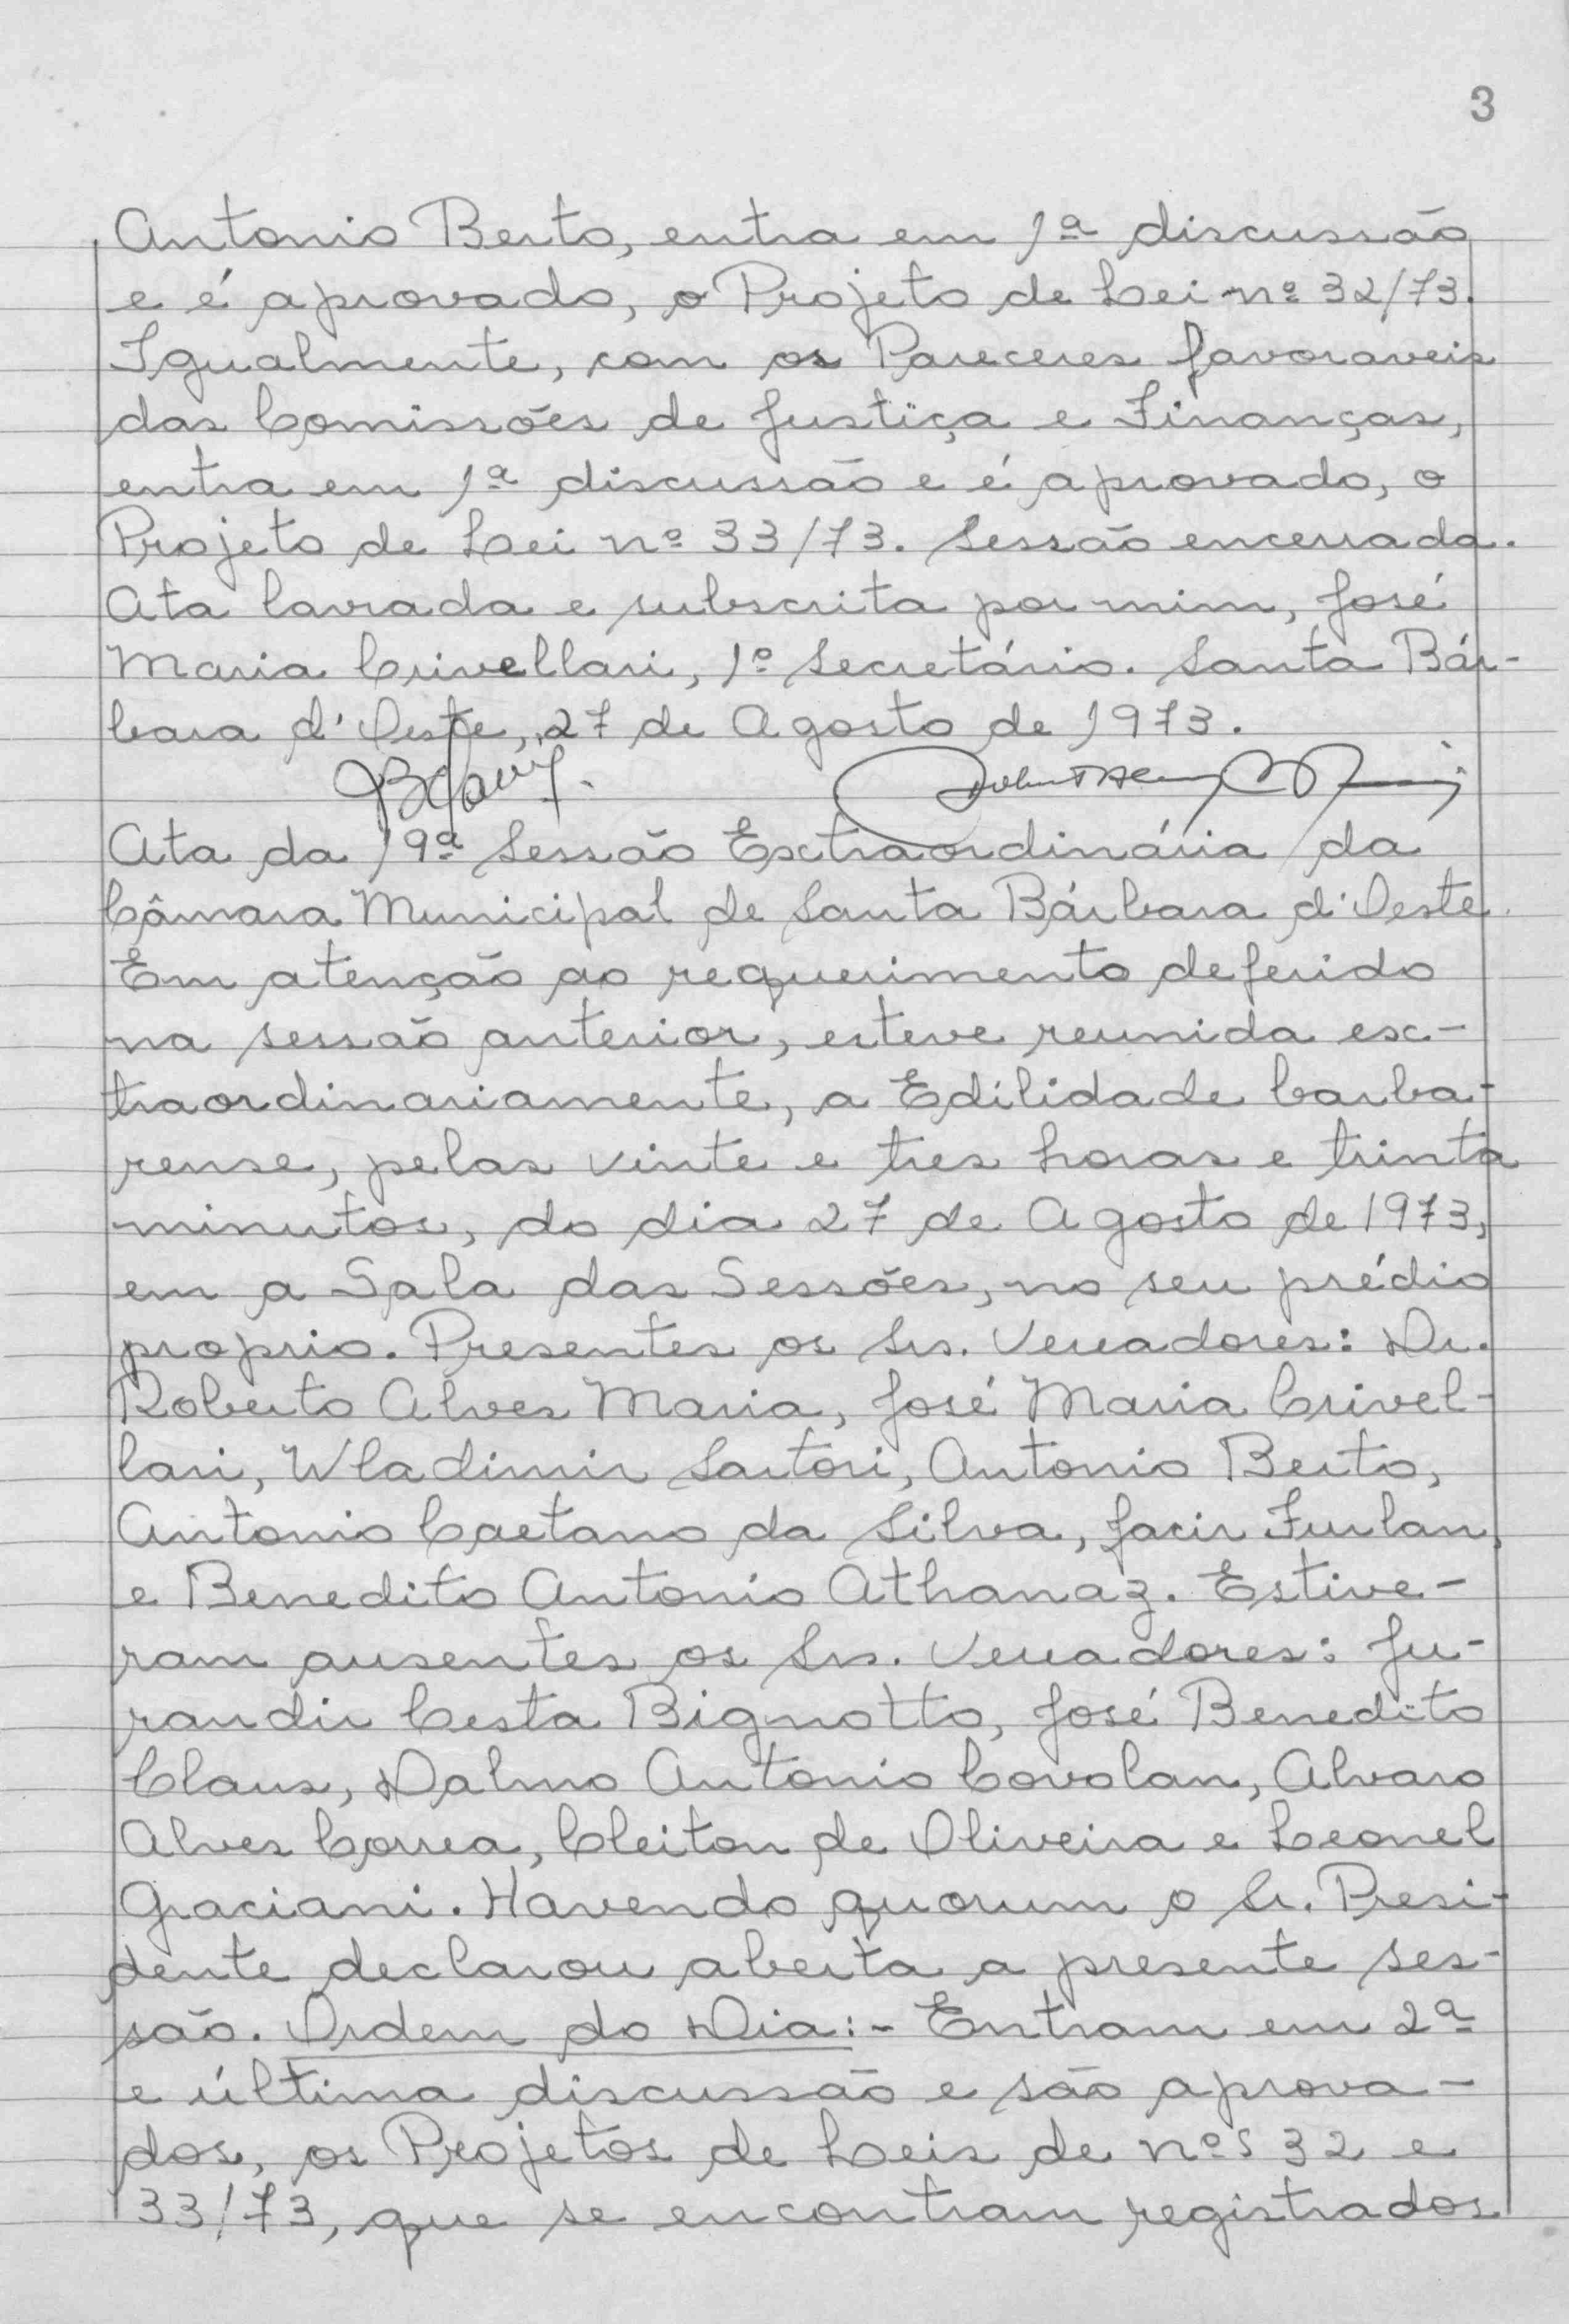 3
Antonio Berto, entra em 1ª discussão
e é aprovado, o Projeto de Lei nº 32/73.
Igualmente, com os Pareceres favoraveis
das Comissões de Justiça e Finanças,
entra em 1ª discussão e é aprovado, o
Projeto de Lei nº 33/73. Sessão encerrada.
Ata lavrada e subscrita por mim, José
Maria Crivellari, 1º Secretário. Santa Bár-
bara d'Oeste, 27 de Agosto de 1973.
Ata da 19ª Sessão Extraordinária da
Câmara Municipal de Santa Bárbara d'Oeste.
Em atenção ao requerimento deferido
na sessão anterior, esteve reunida ex-
traordinariamente, a Edilidade barba-
rense, pelas vinte e tres horas e trinta
minutos, do dia 27 de Agosto de 1973,
em a Sala das Sessões, no seu prédio
proprio. Presentes os Srs. Vereadores: Dr.
Roberto Alves Maria, José Maria Crivel-
lari, Wladimir Sartori, Antonio Berto,
Antonio Caetano da Silva, Jacir Furlan,
e Benedito Antonio Athanaz. Estive-
ram ausentes os Srs. Vereadores: Ju-
randir Cesta Bignotto, José Benedito
Claus, Dalmo Antonio Covolan, Alvaro
Alves Correa, Cleiton de Oliveira e Leonel
Graciani. Havendo quorum o Sr. Presi-
dente declarou aberta a presente ses-
são. Ordem do Dia:- Entram em 2ª
e última discussão e são aprova-
dos, os Projetos de Leis de nºs 32 e
33/73, que se encontram registrados